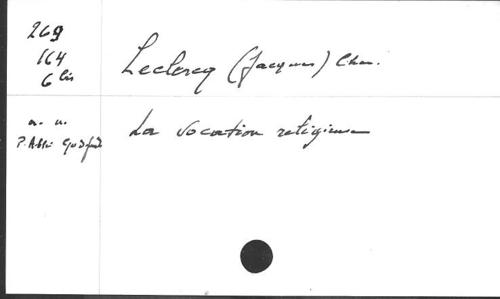 269
164
6 bis
Leclercq (Jacques) Chan.
a. u.
P. Abbé
La vocation religieuse